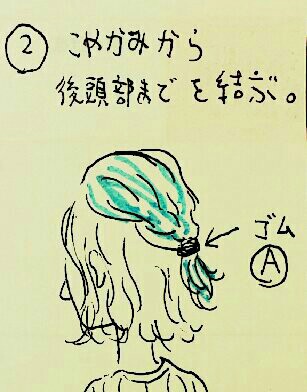 ② こめかみから
後頭部までを結ぶ。
ゴム
Ⓐ